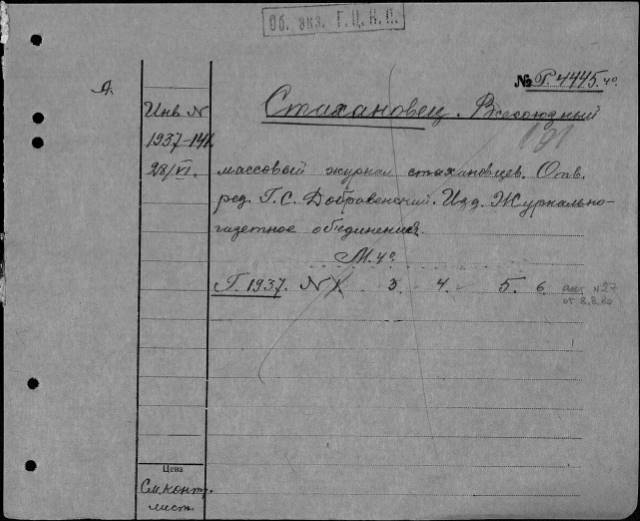 Об. экз. Г.Ц.К.П.
№ Г. 4445. 4о.
А.
Инв. N
1937-
28/VI.
Стахановец. Всесоюзный
массовый журнал стахановцев. Отв.
ред. Г.С. Добровенский. Изд. Журнально-
газетное объединение.
М. 4о
Г. 1937. N 1. 3. 4. 5. 6.
акт N 27
от 8.8.80
Цена
См. контр.
лист.